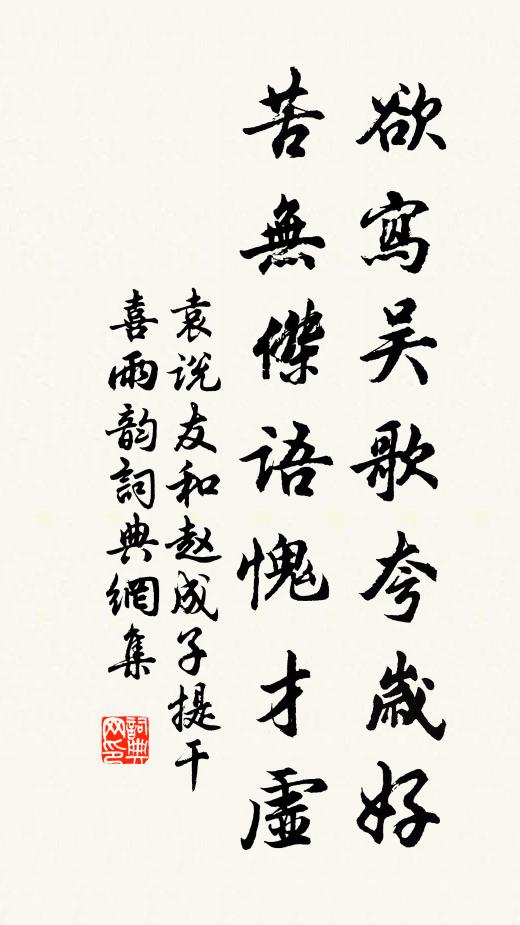 欲寫吴歌夸歲好
苦無傑語愧才虛
袁说友和赵成子提干
喜雨韵詞典網集
詞典
网印